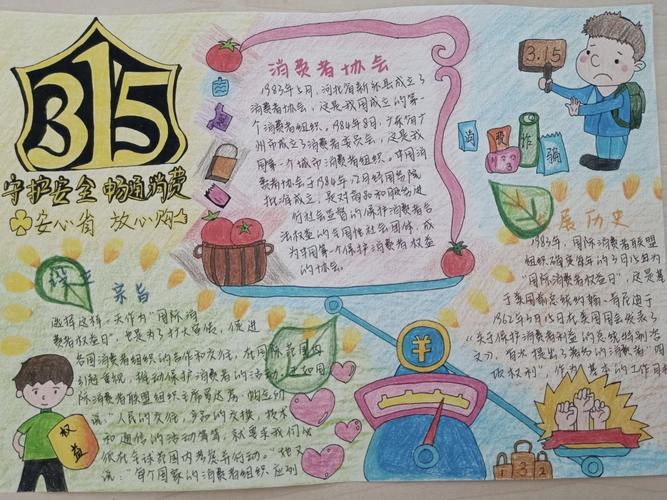 315
守护安全 畅通消费
安心省 放心购
消费者协会
1983年5月，河北省新乐县成立了
消费者协会，这是我国成立的第一
个消费者组织。1984年8月，广东省广
州市成立了消费者委员会，这是我
国第一个城市消费者组织。中国消
费者协会于1984年12月经国务院
批准成立，是对商品和服务进
行社会监督的保护消费者合
法权益的全国性社会团体，成
为中国第一个保护消费者权益
的协会。
3.15
消费诈骗
发展历史
1983年，国际消费者联盟
组织确定每年的3月15日为
“国际消费者权益日”，这是基
于美国前总统约翰·肯尼迪于
1962年3月15日在美国国会发表了
《关于保护消费者利益的总统特别咨
文》，首次提出了著名的消费者“四
项权利”，作为基本的工作目标
宗旨
选择这样一天作为“国际消
费者权益日”，也是为了扩大宣传，促进
各国消费者组织的合作和交往，在国际范围内
引起重视，推动保护消费者的活动。
际消费者联盟组织主席
说：“人民的交往，产品的交换，技术
和通信的活动等等，就要求我们必
须在全球范围内考虑并行动。”他又
说：“每个国家的消费者组织应到
权益
¥
3
1
2